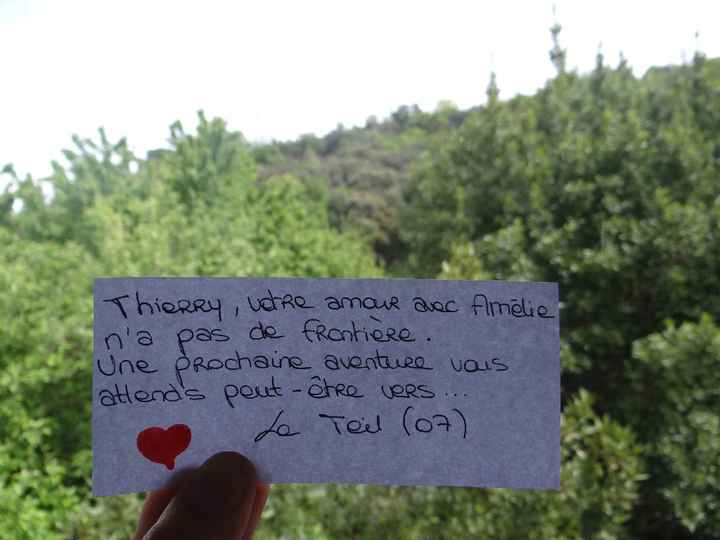 Thierry, votre amour avec Amélie
n'a pas de frontière.
Une prochaine aventure vous
attends peut-être vers...
Le Teil (07)